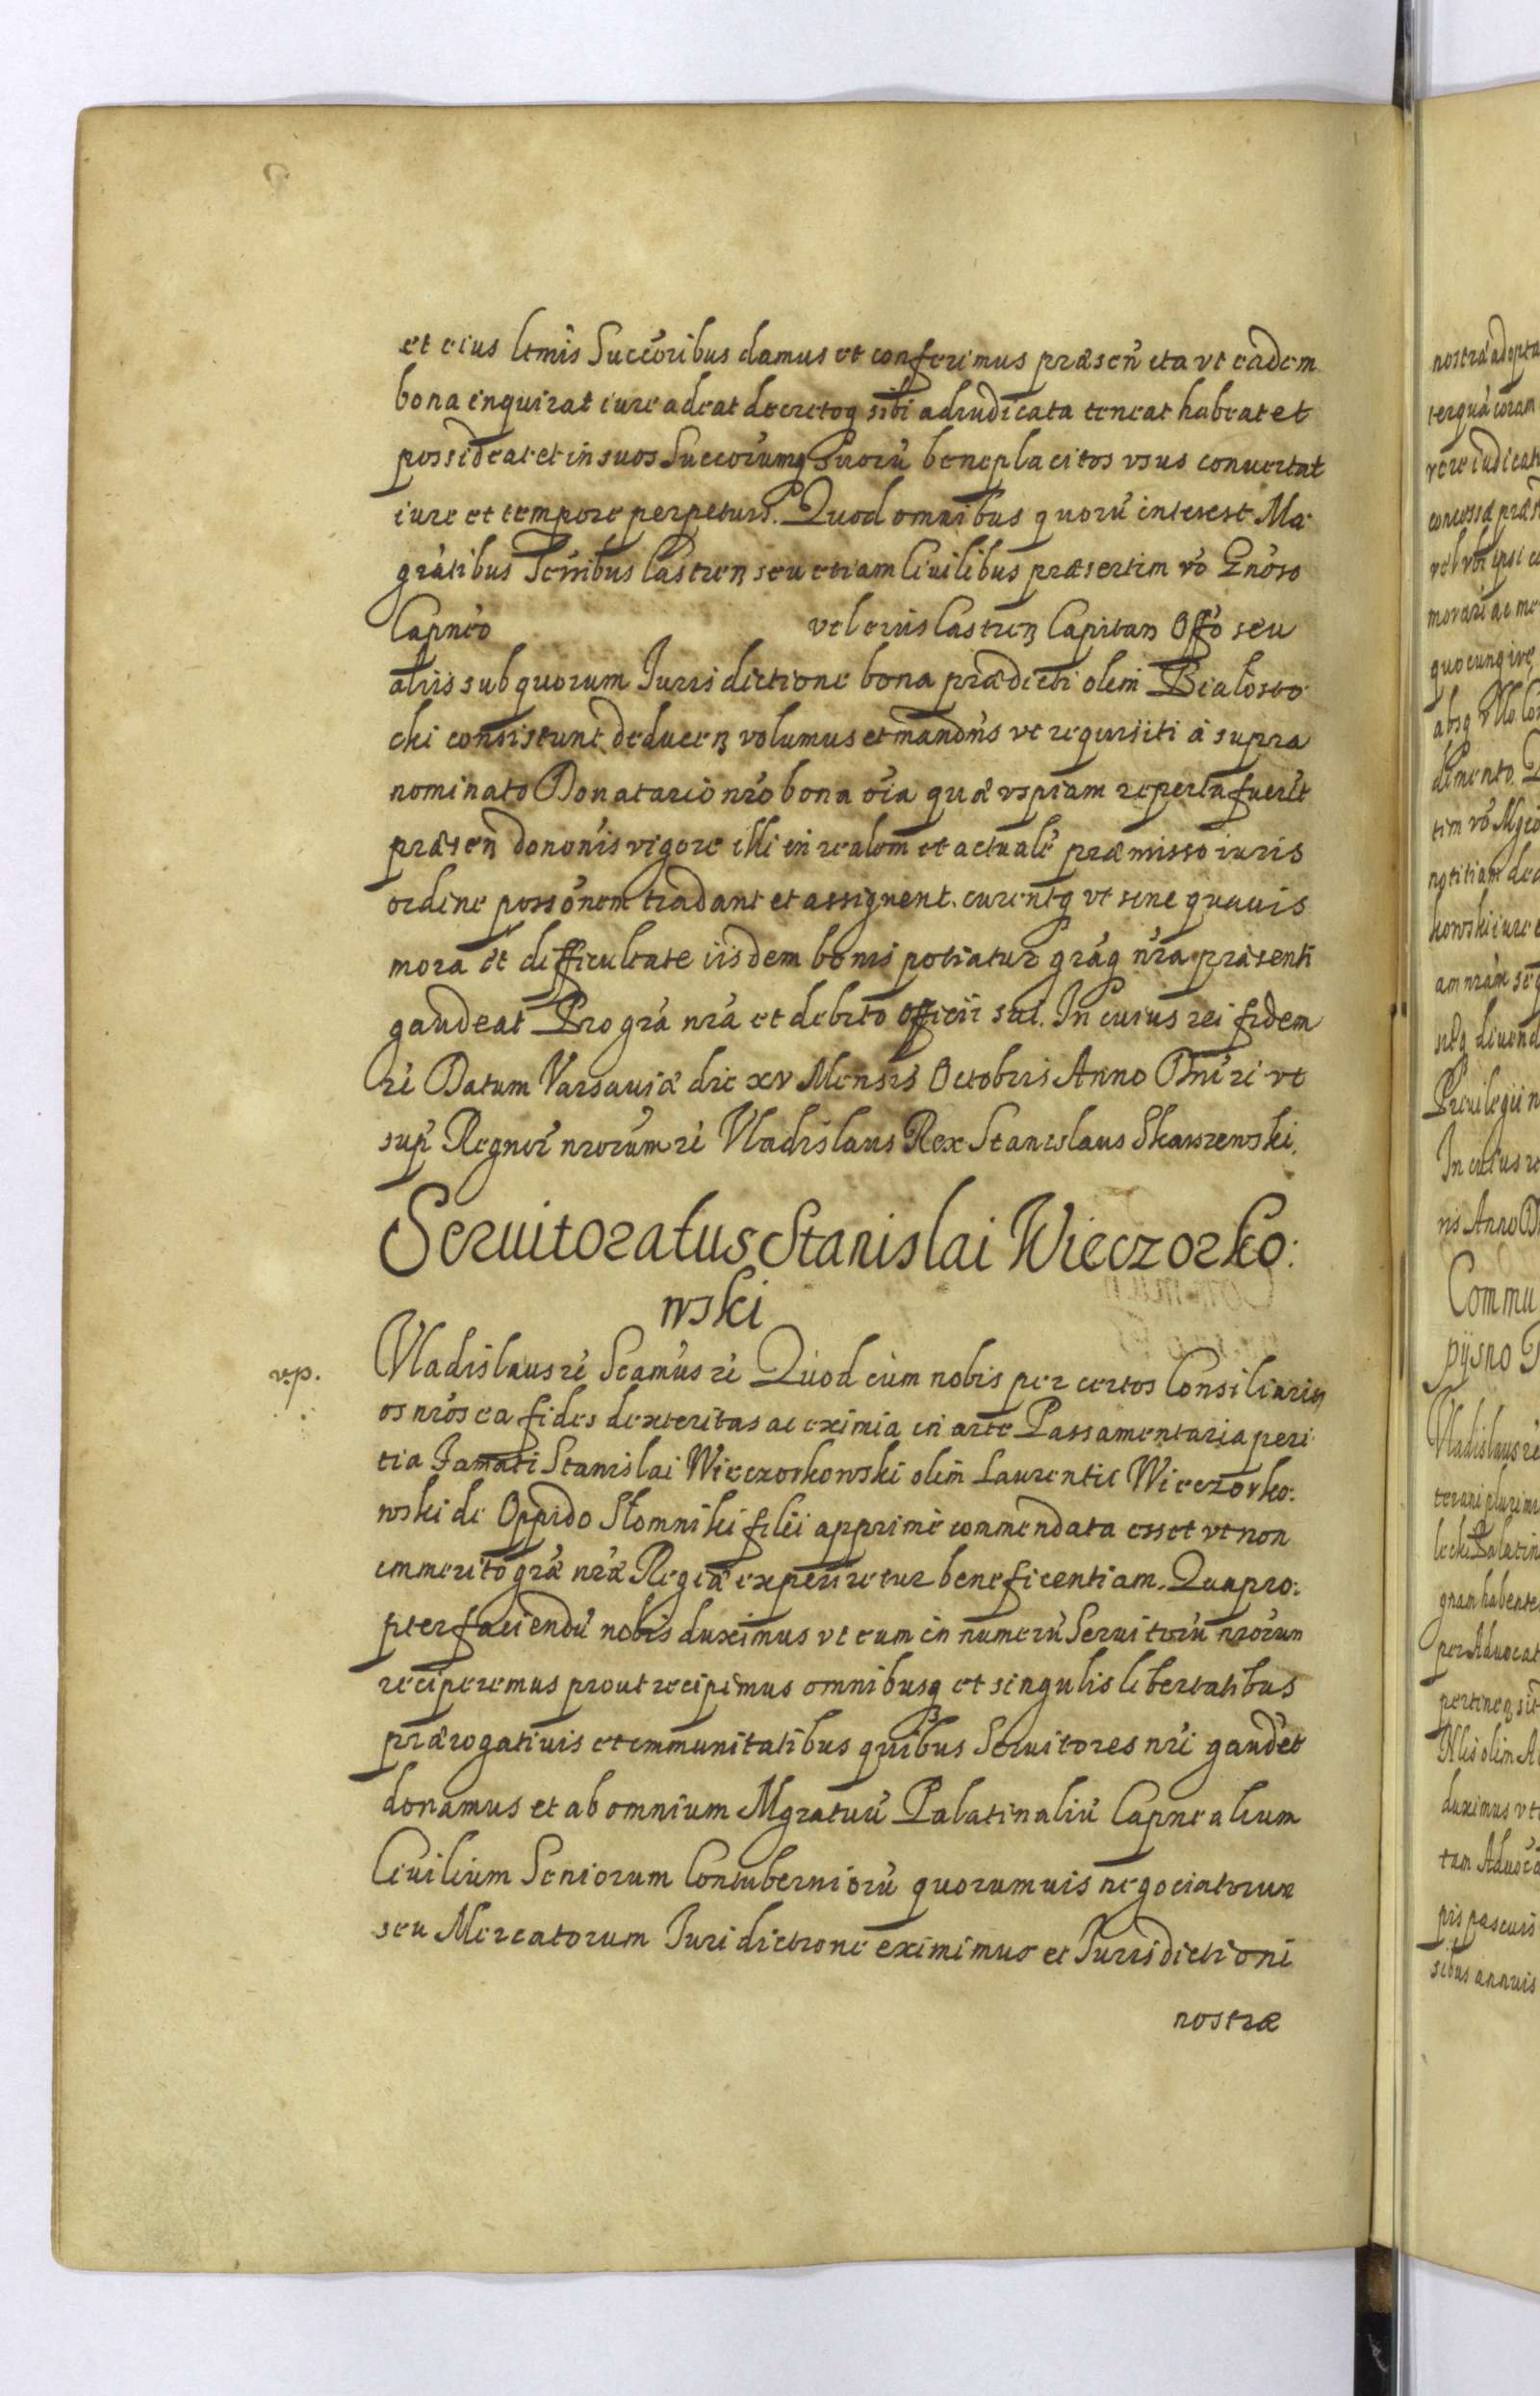 et eius ltmis Succoribus damus et conferimus præsen̄ ita vt eadem
bona inquirat iure adeat decretoq sibi adiudicata teneat habeat et
possideat et in suos Succorumq Suorū beneplacitos vsus conuertat
iure et tempore perpetuis. Quod omnibus quorū interest Ma
gratibus Terribus Castren seu etiam Ciuilibus præsertim vō Gnōso
Capneō vel eius Castren Capitan Offō seu
aliis sub quorum Jurisdictione bona prædicti olim Bialosto
cki consistunt deducen volumus et mandm̄s vt requisiti à supra
nominato Donatario nrō bona oīa quæ vspiam reperta fuerīt
præsen donōnis vigore illi in realem et actualē præmisso iuris
ordine possōnem tradant et assignent. curentq vt sine quauis
mora et difficultate iisdem bonis potiatur grāq nrā præsenti
gaudeat Pro grā nrā et debito officii sui. In cuius rei fidem
rē Datum Varsauiæ die xv Mensis Octobris Anno Dn̄i rē vt
sup̄ Regnor̄ nrorum rē Vladislaus Rex Stanislaus Skarszewski.
Seruitoratus Stanislai Wieczorko:
wski
v.p.
Vladislaus rē Scamūs rē Quod cùm nobis per certos Consiliari
os nrōs ea fides dexteritas ac eximia in arte Passamentaria peri
tia Famati Stanislai Wieczorkowski olim Laurentii Wieczorko:
wski de Oppido Słomniki filii apprimè commendata esset vt non
immerito grǣ nrǣ Regiæ experiretur beneficentiam. Quapro:
pter faciendū nobis duximus vt eum in numerū Seruitorū nrorum
reciperemus prout recipimus omnibusq et singulis libertatibus
prærogatiuis et immunitatibus quibus Seruitores nrī gaudēt
donamus et ab omnium Mgratuū Palatinaliū Capnealium
Ciuilium Seniorum Contuberniorū quorumuis negociatorum
seu Mercatorum Juridictione eximimus et Jurisdictioni
nostræ